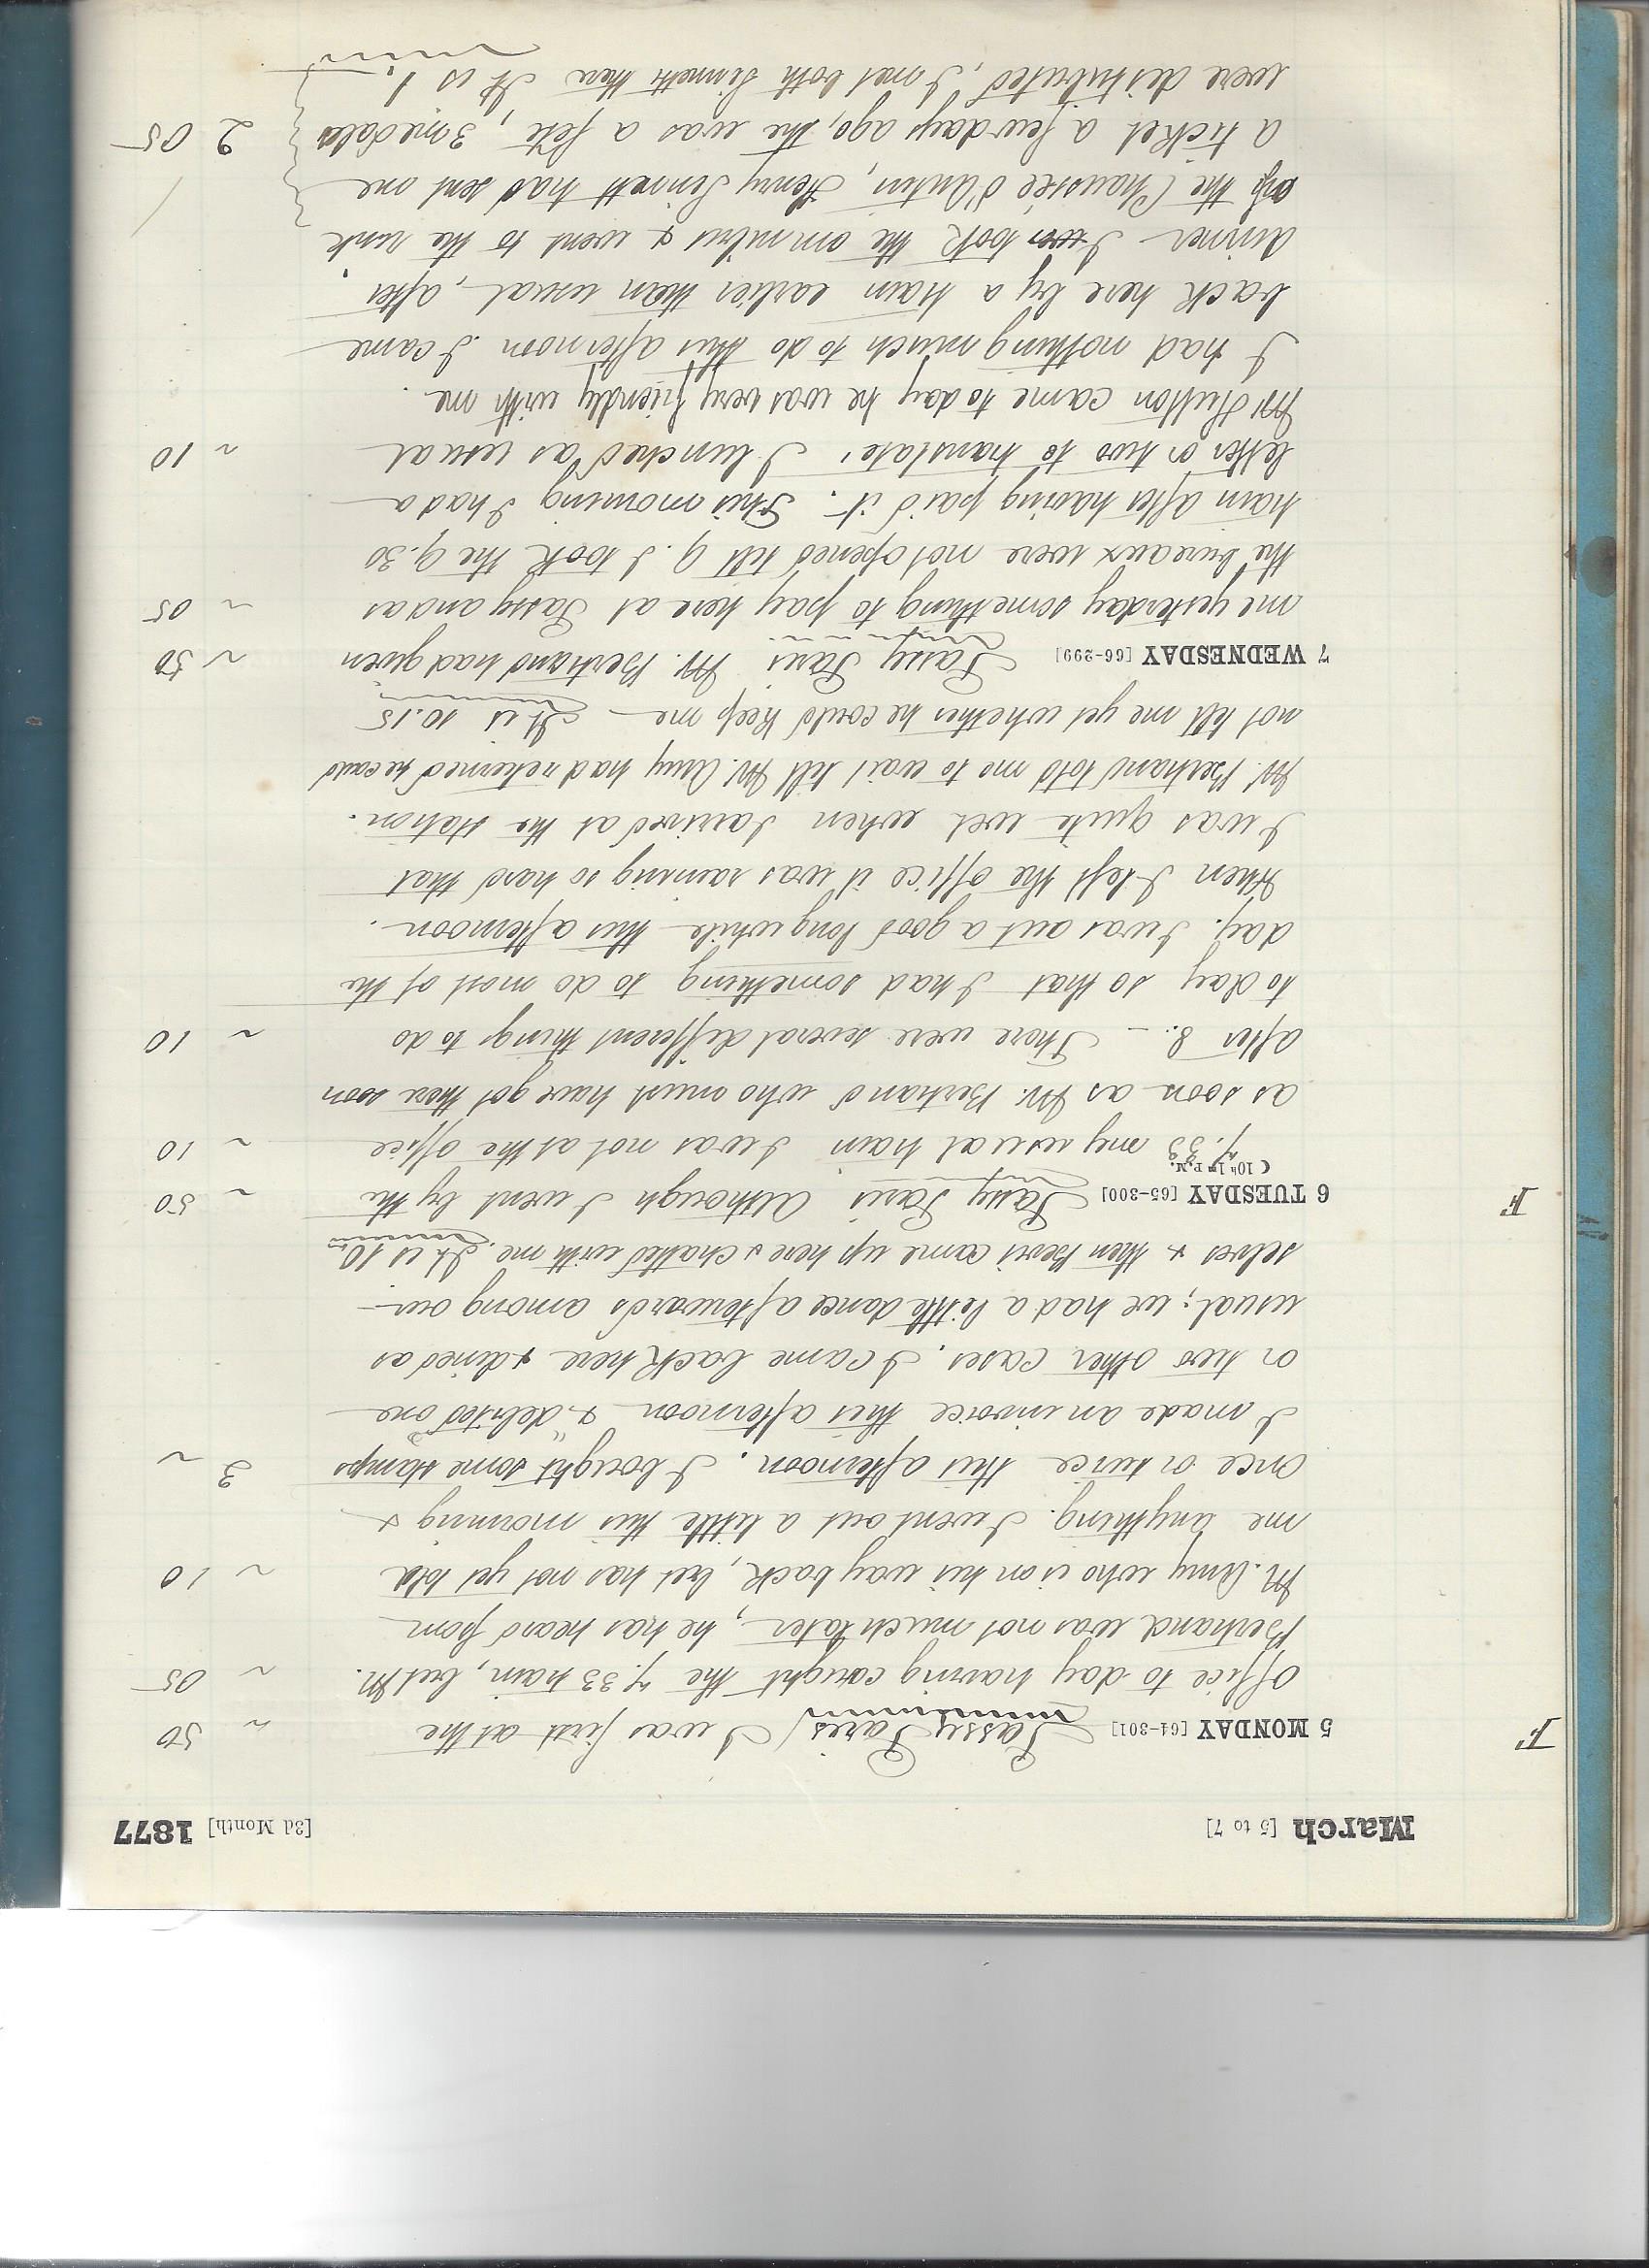 March [5 to 7] [3d Month] 1877
F 5 MONDAY [64-301] Passy Paris I was first at the ~ 50
office to day having caught the 7.33 train, but M. ~ 05
Bertrand was not much later, he has heard from
M. Amy who is on his way back, but has not yet told ~ 10
me anything. I went out a little this morning &
once or twice this afternoon. I bought some stamps 3 ~
I made an invoice this afternoon & "debited" one
or two other cases. I came back here & dined as
usual; we had a little dance afterwards among our-
selves & then Bevis came up here & chatted with me. It is 10.
F 6 TUESDAY [65-300] Passy Paris Although I went by the ~ 50
☾ 10h 1m P.M.
7.33 my usual train I was not at the office ~ 10
as soon as Mr. Bertrand who must have got there soon
after 8. - There were several different things to do ~ 10
to day so that I had something to do most of the
day. I was out a good long while this afternoon.
When I left the office it was raining so hard that
I was quite wet when I arrived at the station.
Mr. Bertrand told me to wait till Mr. Amy had returned he could
not tell me yet whether he could keep me - It is 10.15
7 WEDNESDAY [66-299] Passy Paris Mr. Bertrand had given ~ 50
me yesterday something to pay here at Passy and as ~ 05
the bureaux were not opened till 9. I took the 9.30
train after having paid it. This morning I had a
letter or two to translate. I lunched as usual ~ 10
Mr Hutton came to day he was very friendly with me.
I had nothing much to do this afternoon I came
back here by a train earlier than usual, after
dinner I took the omnibus & went to the rink
of the Chaussée d'Antin, Henry Sinnett had sent me
a ticket a few days ago, the was a fête, 3 medals 2 05
were distributed, I met both Sinnetts there It is 1.